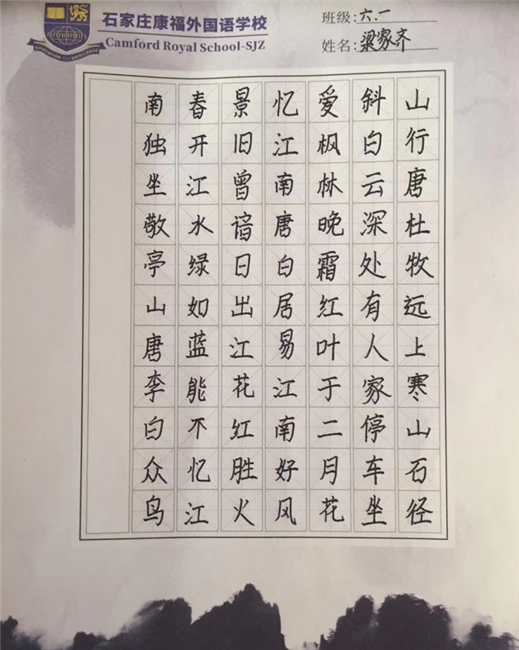 石家庄康福外国语学校
Camford Royal School-SJZ
班级:六.一
姓名:梁家齐
山行唐杜牧远上寒山石径
斜白云深处有人家停车坐
爱枫林晚霜红叶于二月花
忆江南唐白居易江南好风
景旧曾谙日出江花红胜火
春开江水绿如蓝能不忆江
南独坐敬亭山唐李白众鸟